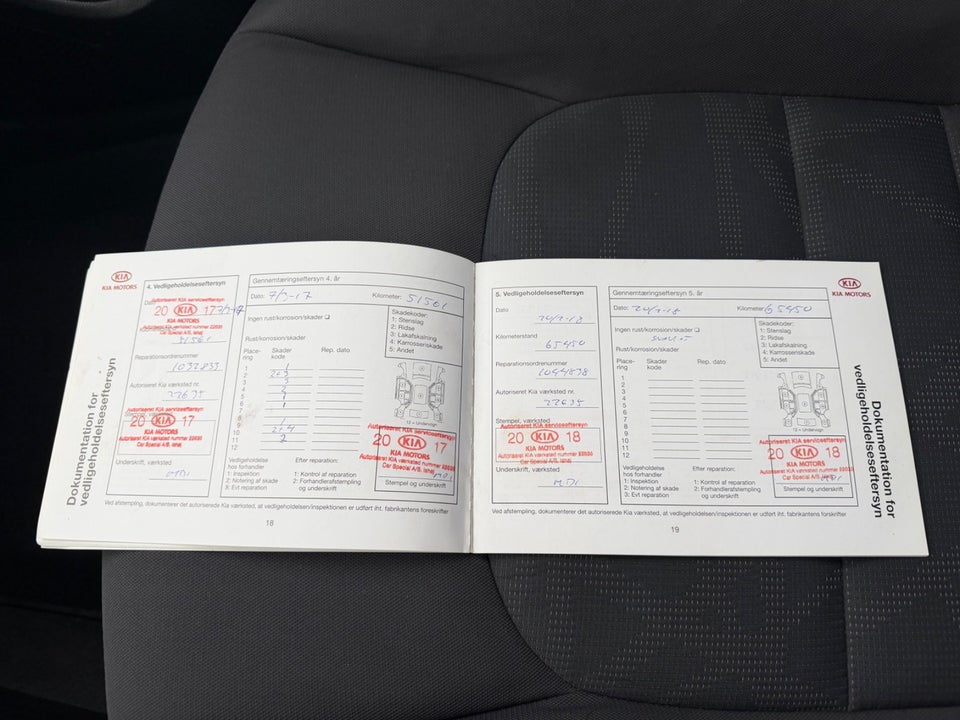 KIA
KIA MOTORS
Dokumentation for
vedligeholdelseseftersyn
4. Vedligeholdelseseftersyn
Autoriseret KIA serviceeftersyn
20 KIA 17
KIA MOTORS
Autoriseret KIA værksted nummer 22635
Car Special A/S, Ishøj
51501
Reparationsordrenummer
1032833
Autoriseret Kia værksted nr.
22635
Autoriseret KIA serviceeftersyn
20 KIA 17
KIA MOTORS
Autoriseret KIA værksted nummer 22635
Car Special A/S, Ishøj
Underskrift, værksted
Gennemtæringseftersyn 4. år
Dato: 7/3-17
Kilometer: 51501
Ingen rust/korrosion/skader
Rust/korrosion/skader:
Skadekoder:
1: Stenslag
2: Ridse
3: Lakafskalning
4: Karrosseriskade
5: Andet
Place-
ring
Skader
kode
Rep. dato
1
2
3
4
5
6
7
8
9
10
11
12
12 = Undervogn
Vedligeholdelse
hos forhandler
1: Inspektion
2: Notering af skade
3: Evt reparation
Efter reparation:
1: Kontrol af reparation
2: Forhandlerafstempling
og underskrift
Autoriseret KIA serviceeftersyn
20 KIA 17
KIA MOTORS
Autoriseret KIA værksted nummer 22635
Car Special A/S, Ishøj
Stempel og underskrift
Ved afstempling, dokumenterer det autoriserede Kia værksted, at vedligeholdelsen/inspektionen er udført iht. fabrikantens foreskrifter
18
5. Vedligeholdelseseftersyn
Dato
Kilometerstand
65450
Reparationsordrenummer
1044838
Autoriseret Kia værksted nr.
22635
Stempel, værksted
Autoriseret KIA serviceeftersyn
20 KIA 18
KIA MOTORS
Autoriseret KIA værksted nummer 22635
Car Special A/S, Ishøj
Underskrift, værksted
Gennemtæringseftersyn 5. år
Dato:
Kilometer: 65450
Ingen rust/korrosion/skader
Rust/korrosion/skader:
Skadekoder:
1: Stenslag
2: Ridse
3: Lakafskalning
4: Karrosseriskade
5: Andet
Place-
ring
Skader
kode
Rep. dato
1
2
3
4
5
6
7
8
9
10
11
12
12 = Undervogn
Vedligeholdelse
hos forhandler
1: Inspektion
2: Notering af skade
3: Evt reparation
Efter reparation:
1: Kontrol af reparation
2: Forhandlerafstempling
og underskrift
Autoriseret KIA serviceeftersyn
20 KIA 18
KIA MOTORS
Autoriseret KIA værksted nummer 22635
Car Special A/S, Ishøj
Stempel og underskrift
Ved afstempling, dokumenterer det autoriserede Kia værksted, at vedligeholdelsen/inspektionen er udført iht. fabrikantens foreskrifter
19
KIA
KIA MOTORS
Dokumentation for
vedligeholdelseseftersyn